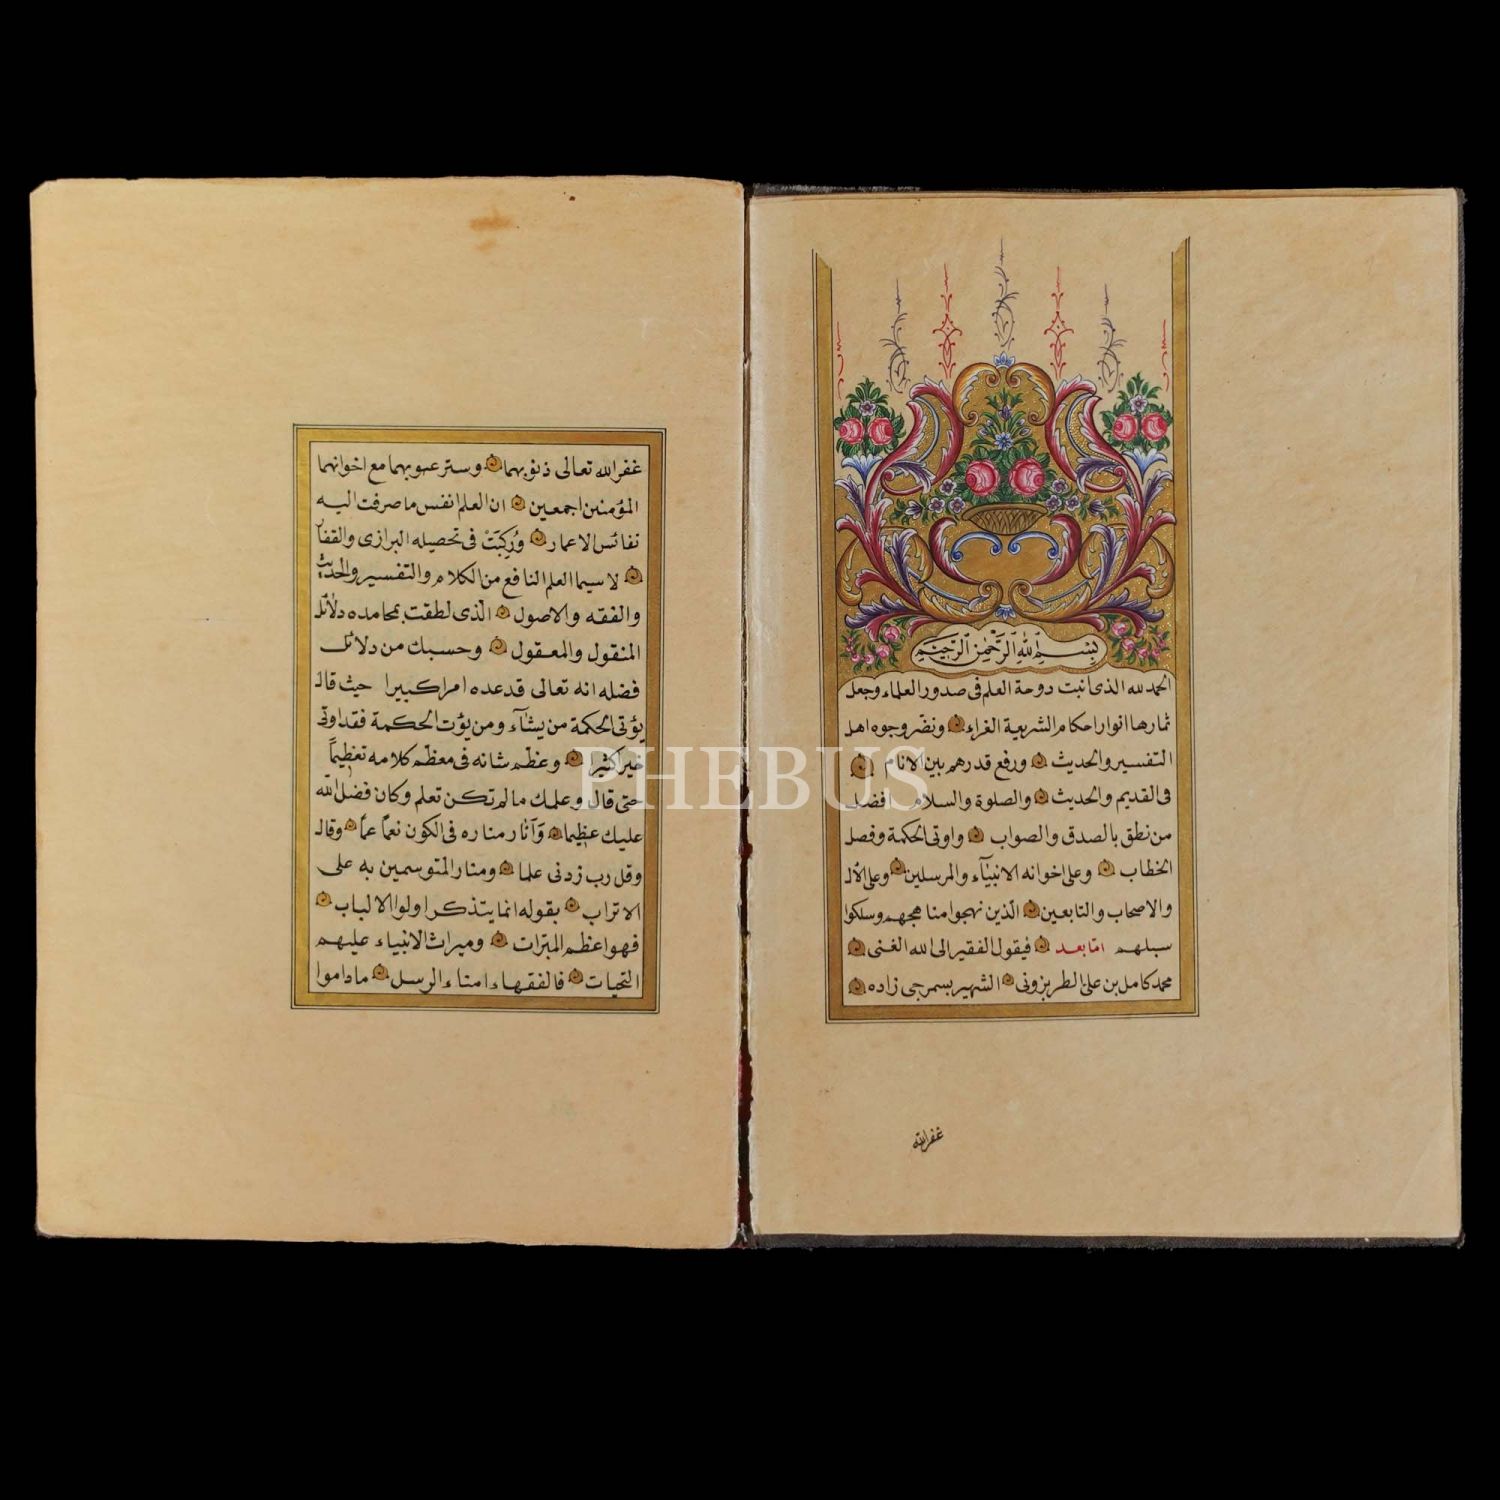 بسم الله الرحمن الرحيم
الحمد لله الذى انبت دوحة العلم فى صدور العلماء وجعل
ثمارها انوار احكام الشريعة الغراء ونضر وجوه اهل
التفسير والحديث ورفع قدرهم بين الانام
فى القديم والحديث والصلوة والسلام افضل
من نطق بالصدق والصواب واوتى الحكمة وفصل
الخطاب وعلى اخوانه الانبيآء والمرسلين وعلى الآل
والاصحاب والتابعين الذين نهجوا مناهجهم وسلكوا
سبلهم امّا بعد فيقول الفقير الى الله الغنى
محمد كامل بن على الطربزونى الشهير بسمرجى زاده
غفر الله
غفر الله تعالى ذنوبهما وستر عيوبهما مع اخوانهما
المؤمنين اجمعين ان العلم انفس ما صرفت اليه
نفائس الاعمار وَرُكِبَتْ فى تحصيله البرازى والقفار
لا سيما العلم النافع من الكلام والتفسير والحديث
والفقه والاصول الذى لطقت بمحامده دلائل
المنقول والمعقول وحسبك من دلائل
فضله انه تعالى قد عده امرا كبيرا حيث قال
يؤتى الحكمة من يشآء ومن يؤت الحكمة فقد اوتى
خيرا كثيرا وعظم شانه فى معظم كلامه تعظيماً
حتى قال وعلمك ما لم تكن تعلم وكان فضل الله
عليك عظيما وآنار مناره فى الكون نعماً عماً وقال
وقل رب زدنى علما ومنار المتوسمين به على
الاتراب بقوله انما يتذكر اولوا الالباب
فهو اعظم المبرات وميراث الانبياء عليهم
التحيات فالفقهاء امناء الرسل ما داموا
PHEBUS